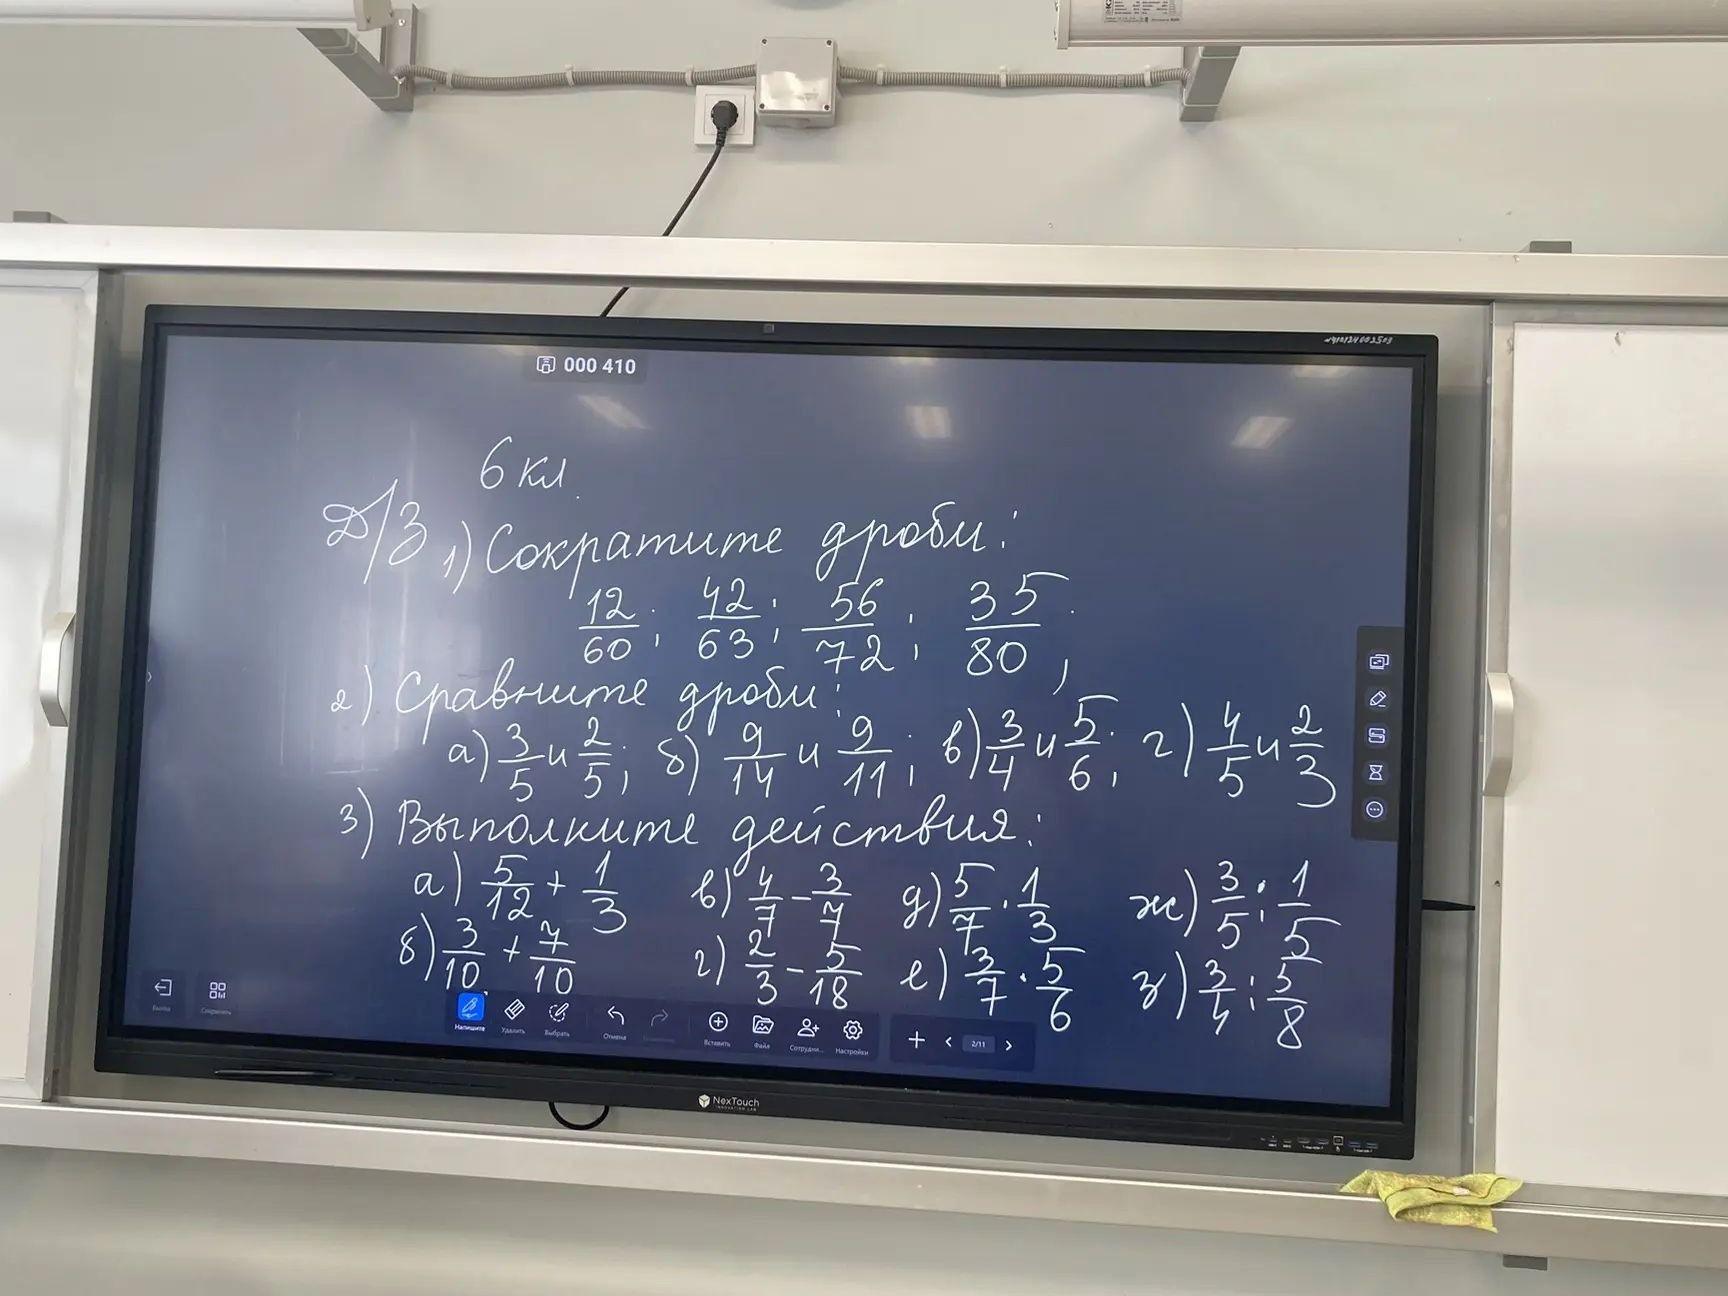 000 410
6 кл.
Д/З 1) Сократите дроби:
12/60; 42/63; 56/72; 35/80;
2) Сравните дроби:
а) 3/5 и 2/5; б) 9/14 и 9/11; в) 3/4 и 5/6; г) 4/5 и 2/3
3) Выполните действия:
а) 5/12 + 1/3 в) 4/7 - 3/7 д) 5/7 · 1/3 ж) 3/5 : 1/5
б) 3/10 + 7/10 г) 2/3 - 5/18 е) 3/7 · 5/6 з) 3/4 : 5/8
Напишите Удалить Выбрать Отмена Вставить Файл Сотрудни... Настройки
2/11
NexTouch
INNOVATION LAB